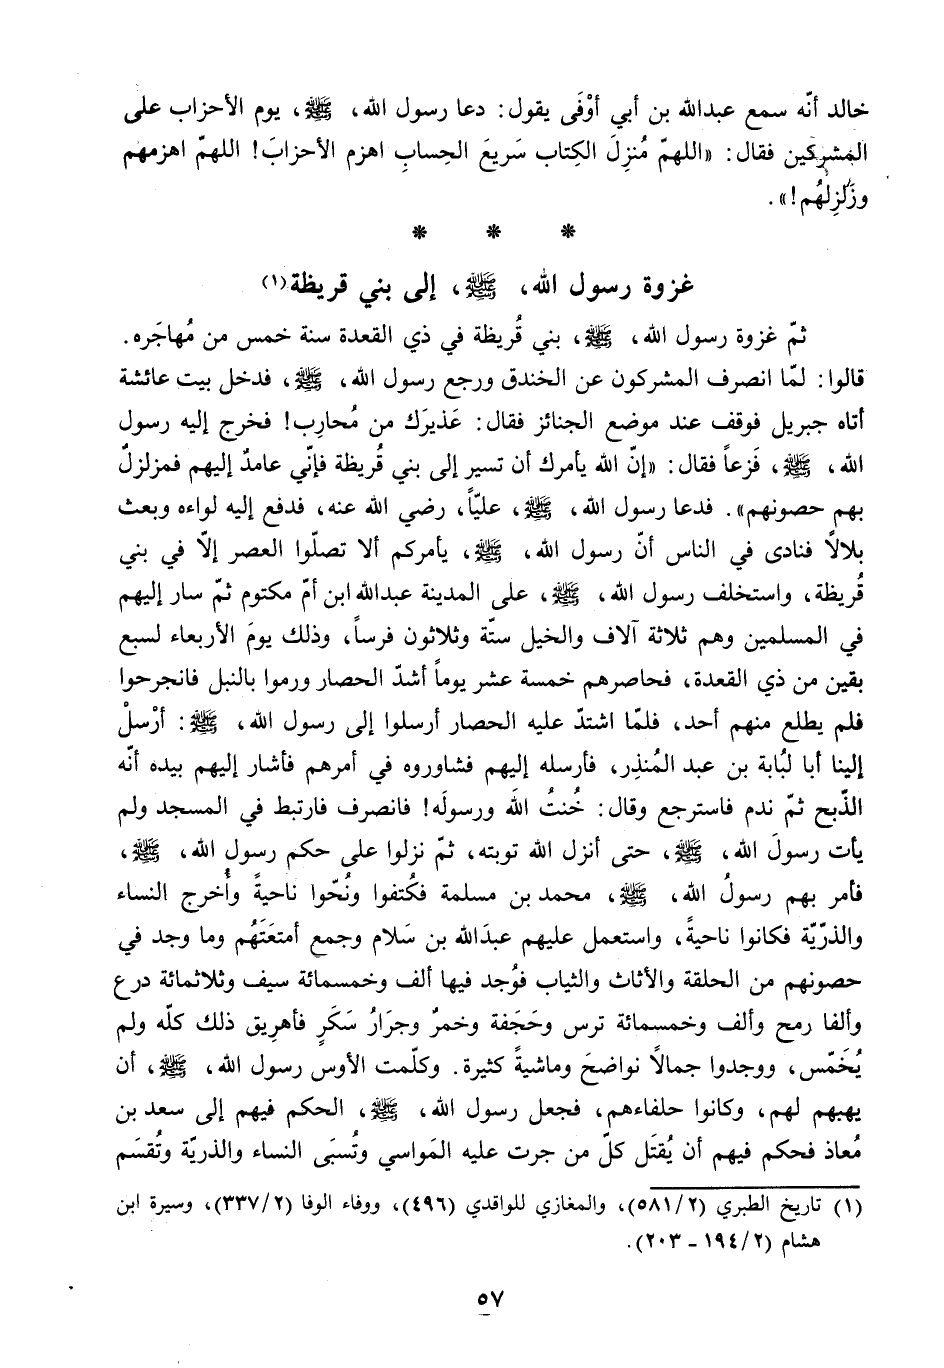 خالد أنّه سمع عبدالله بن أبي أوْفَى يقول: دعا رسول الله، ﷺ، يوم الأحزاب على
المشركين فقال: «اللهمّ مُنزِلَ الكِتاب سَريعَ الحِسابِ اهزم الأحزابَ! اللهمّ اهزمهم
وزَلزِلهُم!».
* * *
غزوة رسول الله، ﷺ، إلى بني قريظة(١)
ثمّ غزوة رسول الله، ﷺ، بني قُريظة في ذي القعدة سنة خمس من مُهاجَره.
قالوا: لمّا انصرف المشركون عن الخندق ورجع رسول الله، ﷺ، فدخل بيت عائشة
أتاه جبريل فوقف عند موضع الجنائز فقال: عَذيرَك من مُحارِب! فخرج إليه رسول
الله، ﷺ، فَزعاً فقال: «إنّ الله يأمرك أن تسير إلى بني قُريظة فإنّي عامدٌ إليهم فمزلزلٌ
بهم حصونهم». فدعا رسول الله، ﷺ، عليّاً، رضي الله عنه، فدفع إليه لواءه وبعث
بلالاً فنادى في الناس أنّ رسول الله، ﷺ، يأمركم ألا تصلّوا العصر إلّا في بني
قُريظة، واستخلف رسول الله، ﷺ، على المدينة عبدالله ابن أمّ مكتوم ثمّ سار إليهم
في المسلمين وهم ثلاثة آلاف والخيل ستّة وثلاثون فرساً، وذلك يومَ الأربعاء لسبع
بقين من ذي القعدة، فحاصرهم خمسة عشر يوماً أشدّ الحصار ورموا بالنبل فانجرحوا
فلم يطلع منهم أحد، فلمّا اشتدّ عليه الحصار أرسلوا إلى رسول الله، ﷺ: أرْسلْ
إلينا أبا لُبابة بن عبد المُنذِر، فأرسله إليهم فشاوروه في أمرهم فأشار إليهم بيده أنّه
الذّبح ثمّ ندم فاسترجع وقال: خُنتُ اللهَ ورسولَه! فانصرف فارتبط في المسجد ولم
يأت رسولَ الله، ﷺ، حتى أنزل الله توبته، ثمّ نزلوا على حكم رسول الله، ﷺ،
فأمر بهم رسولُ الله، ﷺ، محمد بن مسلمة فكُتفوا ونُحّوا ناحيةً وأُخرج النساء
والذرّيّة فكانوا ناحيةً، واستعمل عليهم عبدَالله بن سَلام وجمع أمتعَتَهُم وما وجد في
حصونهم من الحلقة والأثاث والثياب فوُجد فيها ألف وخمسمائة سيف وثلاثمائة درع
وألفا رمح وألف وخمسمائة ترس وحَجَفة وخمرٌ وجرَارُ سَكَرٍ فأُهريق ذلك كلّه ولم
يُخَمّس، ووجدوا جمالاً نواضحَ وماشيةً كثيرة. وكلّمت الأوس رسول الله، ﷺ، أن
يهبهم لهم، وكانوا حلفاءهم، فجعل رسول الله، ﷺ، الحكم فيهم إلى سعد بن
مُعاذ فحكم فيهم أن يُقتَل كلّ من جرت عليه المَواسي وتُسبَى النساء والذريّة وتُقسَم
(١) تاريخ الطبري (٥٨١/٢)، والمغازي للواقدي (٤٩٦)، ووفاء الوفا (٣٣٧/٢)، وسيرة ابن
هشام (١٩٤/٢ ـ ٢٠٣).
٥٧